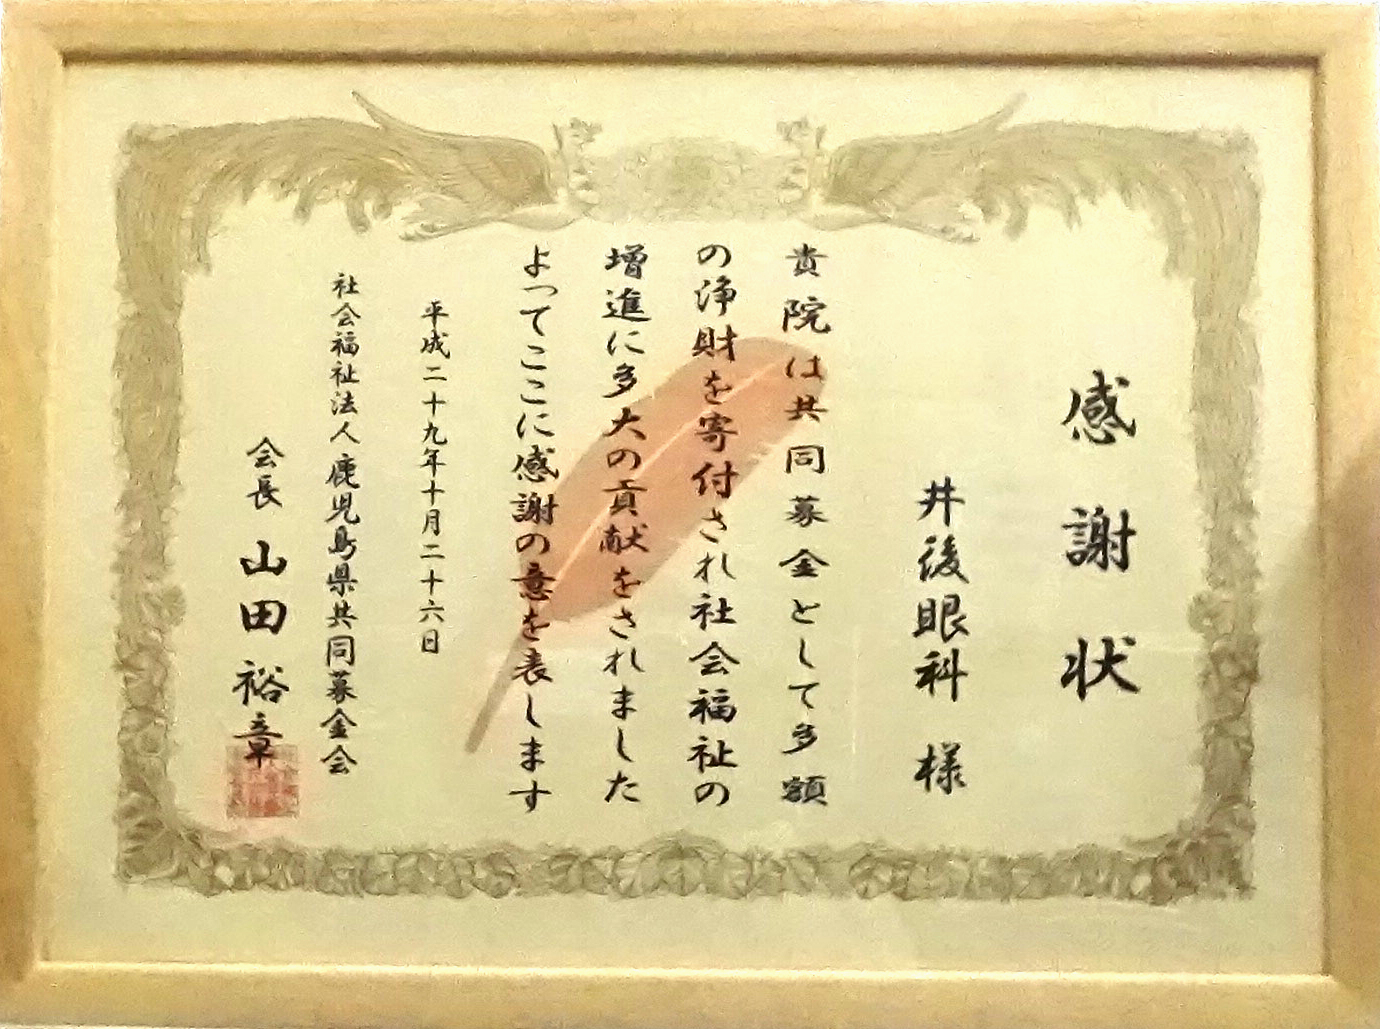 感謝状
井後眼科 様
貴院は共同募金として多額
の浄財を寄付され社会福祉の
増進に多大の貢献をされました
よってここに感謝の意を表します
平成二十九年十月二十六日
社会福祉法人鹿児島県共同募金会
会長 山田裕章